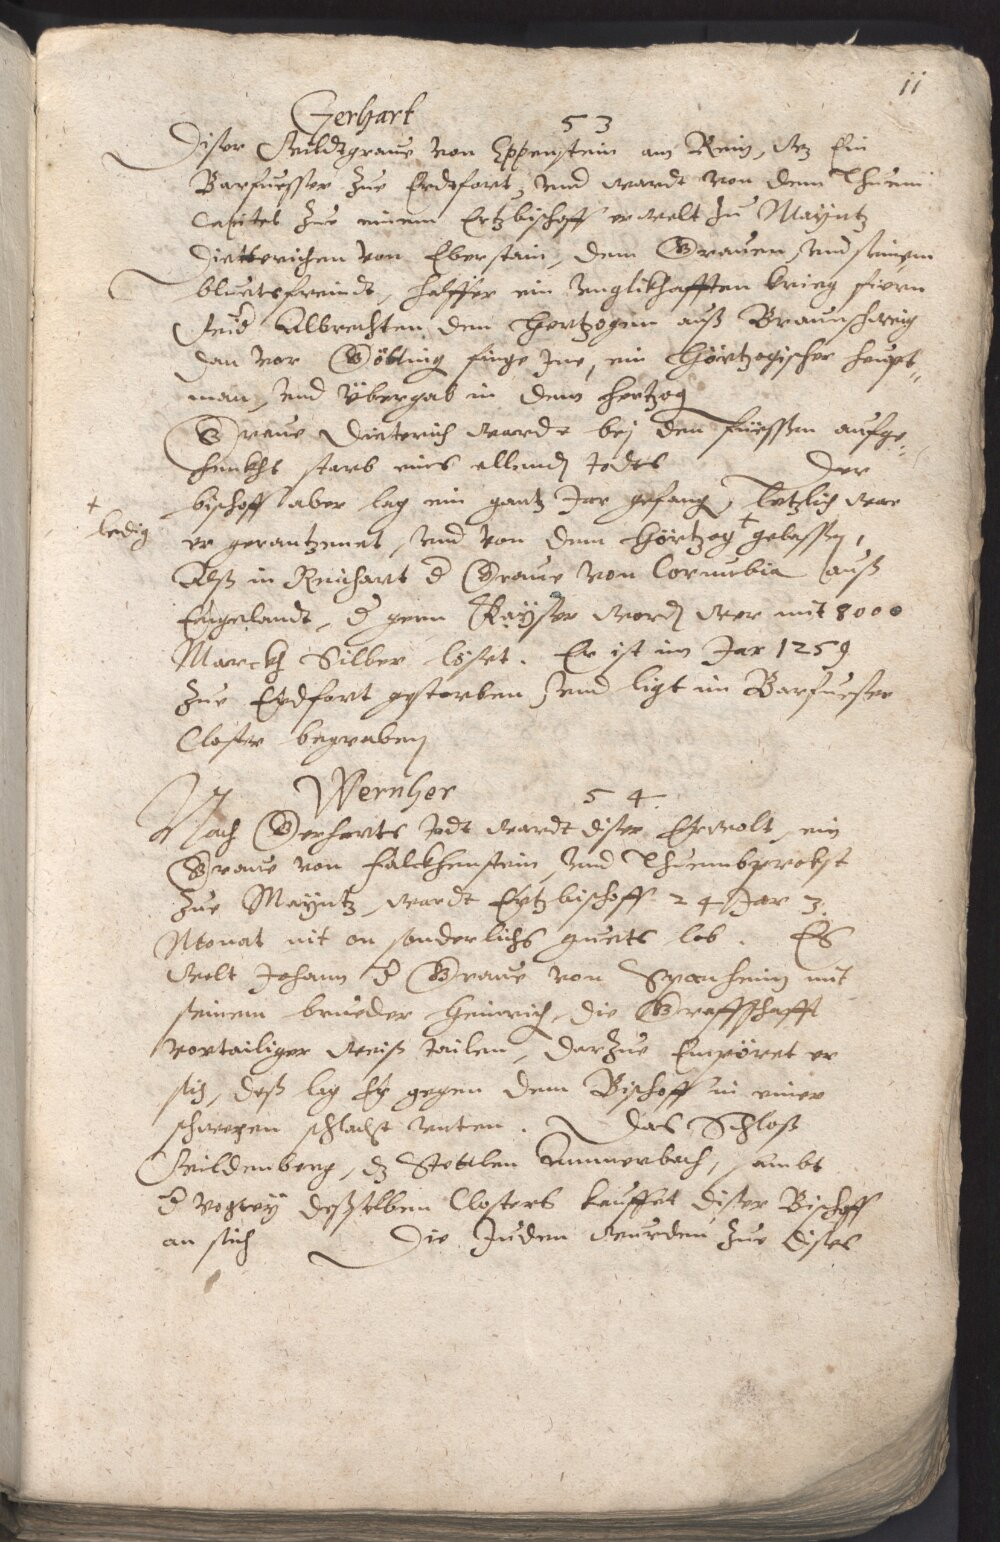 11
Gerhart 53
Diser Wildtgraue von Eppenstein am Rein, Wz Ein
Barfuesser zue Erdtfort, und wardt von dem Thuem
Capitel zue einem Ertzbischoff erwelt zu Mayntz
Dietterichen von Eberstain, dem Grauen, und seinem
bluetsfreindt, halff er ein unglikhafften krieg fiern
wid Albrechten dem Hertzogen auß Braunschweig
dan vor Götting fienge Jne, ein Hörtzogischer haupt„
man, und übergab in dem hertzog
Graue Dieterich wardt bej den füessen aufge„
henkht starb eines ellendẽ todts Der
bischoff aber lag ein gantz Jar gefang, letzlich ware
+ ledig
er gerantzmet, und von dem Hörtzog + gelassẽ,
Alß in Reichart d Graue von Cornubia auß
Engelandt, d gern Kayser wordẽ wer mit 8000
Marckh Silber löset. Er ist im Jar 1259
zue Erdfort gestorben, und ligt im Barfuesser
Closter begraben
Wernher 54.
Nach Gerharts Todt wardt diser Erwelt, ein
Graue von Falckhenstein, und Thuembprobst
zue Mayntz, wardt Ertzbischoff 24 Jar 3.
Monat nit on sonderlichs guets lob. Es
wolt Johann d Graue von Spanheim mit
seinem brueder Heinrich, die Graffschafft
vortailiger weiß tailen, darzue Empöret er
sich, deß lag Er gegen dem Bischoff in einer
schweren schlacht unten. Das Schloß
Wildenberg, dz Stettlen Ammerbach, sambt
d vogtey desselben Closters kauffet diser Bischoff
an sich Die Juden wurden zue dises